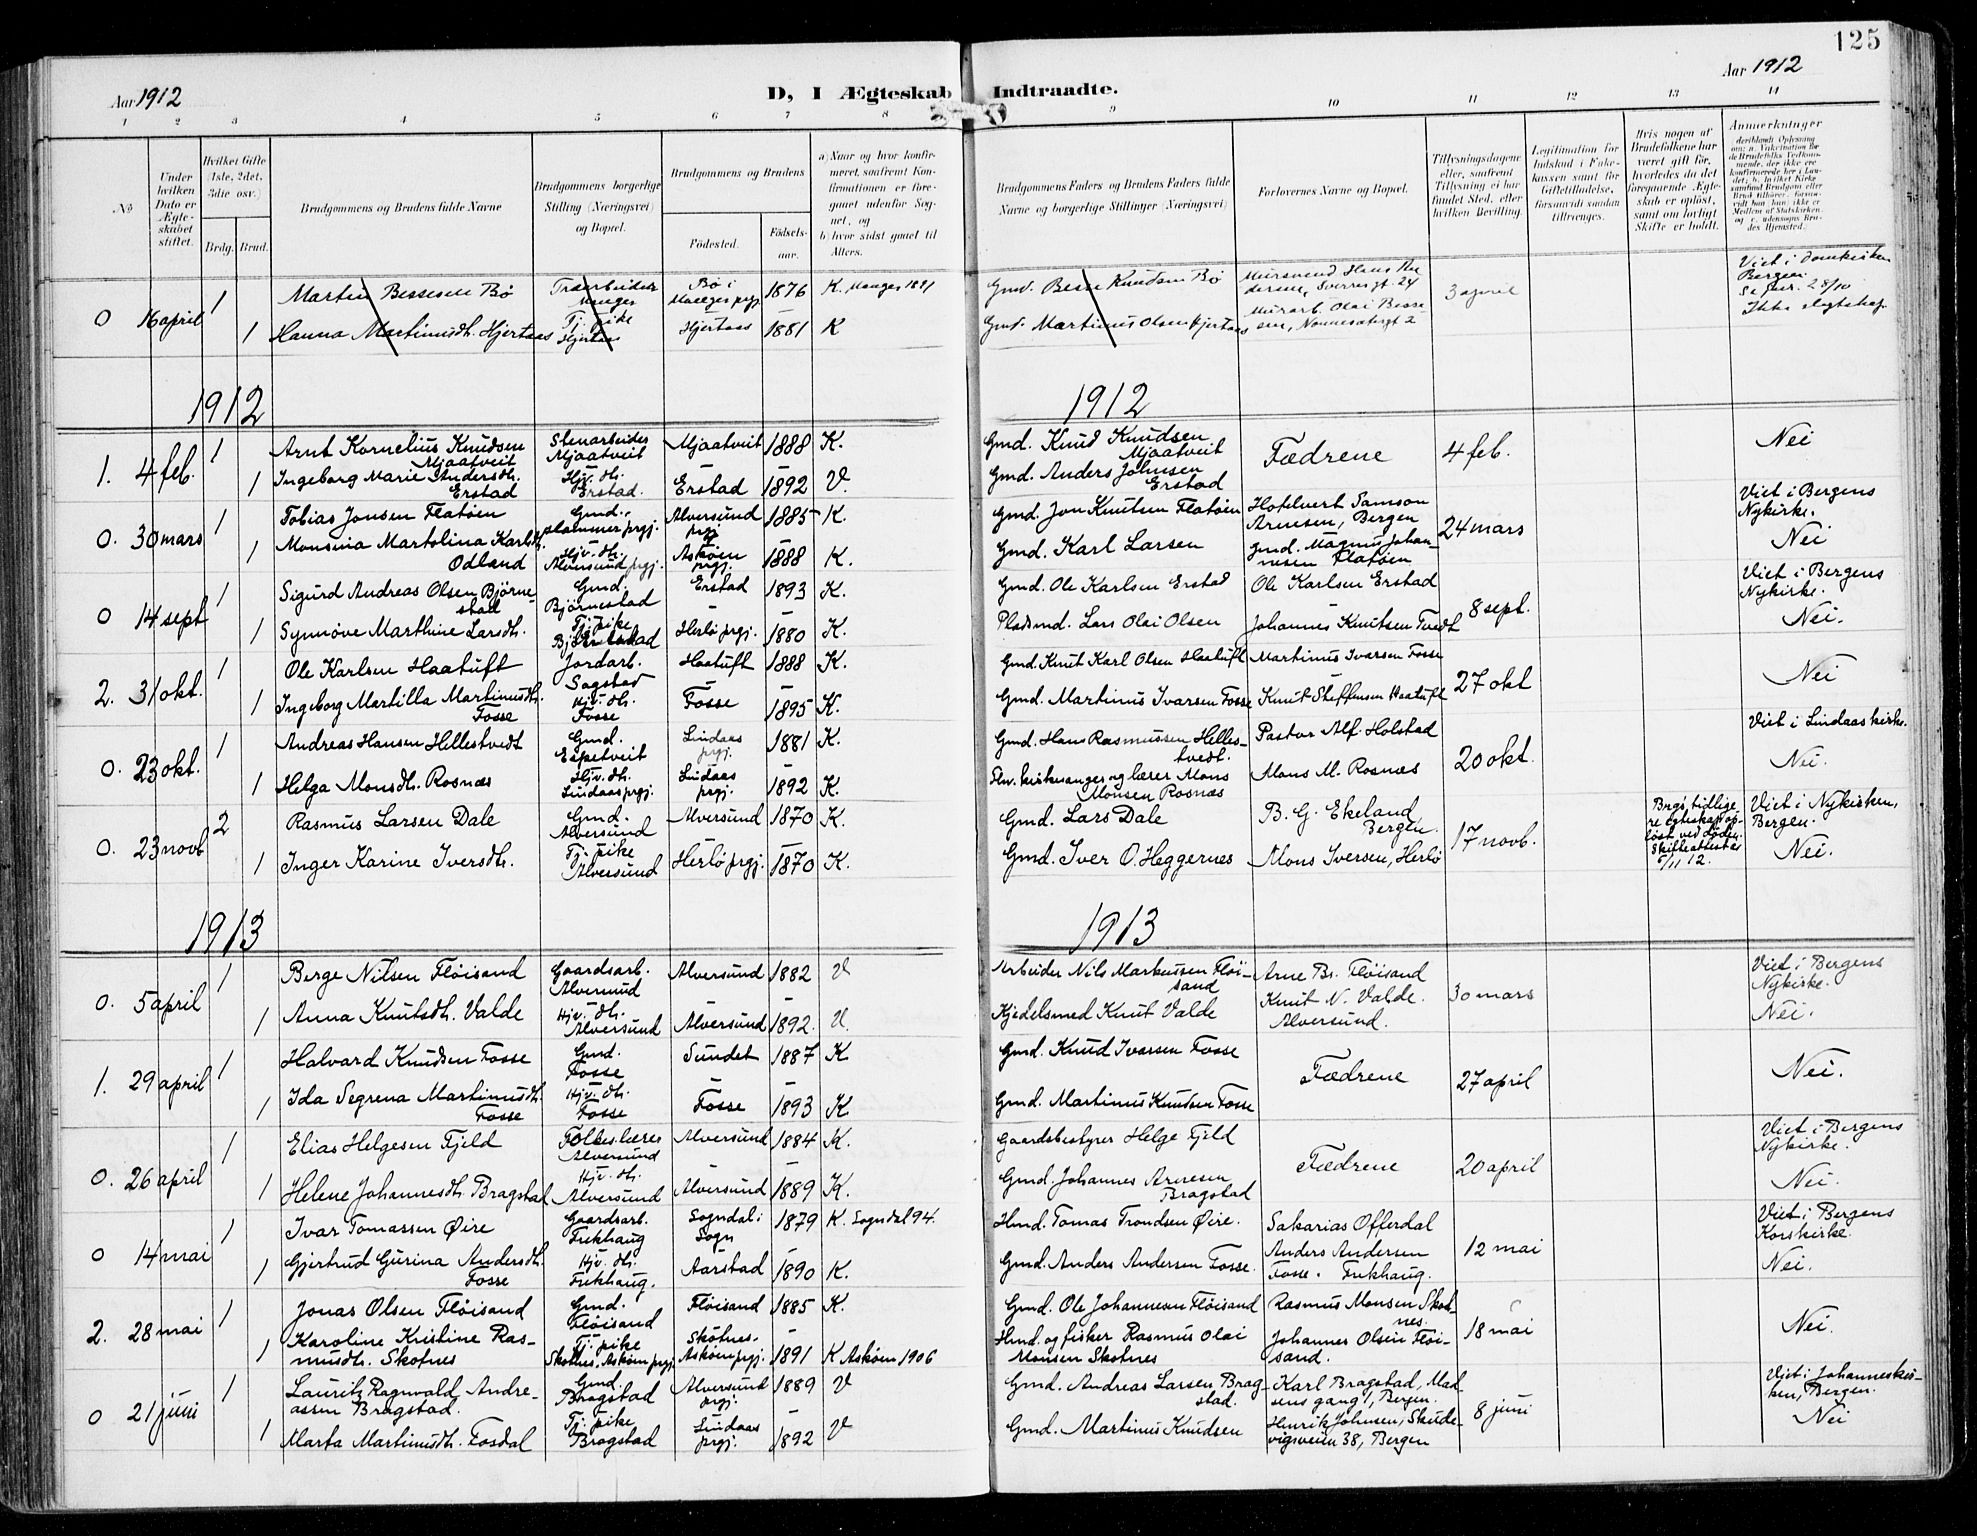 125
Aar 1912
D, I Ægteskab Indtraadte.
Aar 1912
1 2 3 4 5 6 7 8 9 10 11 12 13 14
No
Under hvilken Dato er Ægteskabet stiftet.
Hvilket Gifte (1ste, 2det, 3die osv.)
Brdg. Brud.
Brudgommens og Brudens fulde Navne
Brudgommens borgerlige Stilling (Næringsvei) og Bopæl.
Brudgommens og Brudens
Fødested. Fødselsaar.
a) Naar og hvor konfirmeret, saafremt Konfirmationen er foregaaet udenfor Sognet, og
b) hvor sidst gaaet til Alters.
Brudgommens Faders og Brudens Faders fulde Navne og borgerlige Stillinger (Næringsvei)
Forlovernes Navne og Bopæl.
Tillysningsdagene eller, saafremt Tillysning ei har fundet Sted, efter hvilken Bevilling.
Legitimation for Indskud i Enkekassen samt for Giftetilladelse, forsaavidt saadan tiltrænges.
Hvis nogen af Brudefolkene har været gift før, hvorledes da det foregaaende Ægteskab er opløst, samt om lovligt Skifte er holdt.
Anmerkninger
0 16 april 1 Martin Bessesen Bø Træarbeider Manger Bø i Manger prgj. 1876 K. Manger 1891 Gmd. Besse Knudsen Bø Mursvend Hans Sverresgt. 24 3 april Viet i Domkirken Bergen
1 Hanna Martinusdh. Hjertaas Tj. pike Hjertaas Hjertaas 1881 K Gmd. Martinus Olsen Hjertaas Murarb. Olai Bessesen, Nonnesætergt 2 Ikke Ægteskap.
1912 1912
1. 4 feb. 1 Arnt Kornelius Knudsen Mjaatveit Stenarbeider Mjaatveit Mjaatveit 1888 K. Gmd. Knud Knudsen Mjaatveit Fædrene 4 feb. Nei
1 Ingeborg Marie Andersdh. Erstad Hjv. dh. Erstad. Erstad 1892 V. Gmd. Anders Johnsen Erstad
0. 30 mars 1 Tobias Jonsen Flatøen Gmd., Hammer prgj. Alversund prgj 1885 K. Gmd. Jon Knutsen Flatøen Hotelvert Samson Arnesen, Bergen 24 mars Viet i Bergens Nykirke.
1 Monsina Martolina Karlsdh. Odland Hjv. dh. Alversund prgj. Askøen prgj. 1888 K. Gmd. Karl Larsen Gmd. Magnus Johannesen Flatøen Nei
0 14 sept 1 Sigurd Andreas Olsen Bjørnestad Gmd. Bjørnestad Erstad 1893 K. Gmd. Ole Karlsen Erstad Ole Karlsen Erstad 8 sept. Viet i Bergens Nykirke.
1 Synnøve Marthine Larsdh. Tj. pike Bjørnestad Herlø prgj. 1880 K. Pladsmd. Lars Olai Olsen Johannes Knutsen Tvedt Nei.
2. 31 okt. 1 Ole Karlsen Haatuft Jordarb. Sagstad Haatuft 1888 K. Gmd. Knut Karl Olsen Haatuft Martinus Ivarsen Fosse 27 okt Nei
1 Ingeborg Martilla Martinusdh. Fosse Hjv. dh. Fosse Fosse 1895 K. Gmd. Martinus Ivarsen Fosse Knut Steffensen Haatuft
0. 23 okt. 1 Andreas Hansen Hellestvedt Gmd. Espetveit Lindaas prgj. 1881 K. Gmd. Hans Rasmussen Hellestvedt. Pastor Alf. Holstad 20 okt. Viet i Lindaas kirke.
1 Helga Monsdh. Rosnæs Hjv. dh. Lindaas prgj. Lindaas prgj. 1892 K. kirkesanger og lærer Mons Monsen Rosnæs Mons M. Rosnæs Nei.
0. 23 novb 2 Rasmus Larsen Dale Gmd. Alversund Alversund 1870 K. Gmd. Lars Dale B. G. Ekeland Bergen. 17 novb. Brgs. tidligere egteskap opløst ved døden. Skifteattest av 5/11 12. Viet i Nykirken, Bergen.
1 Inger Karine Iversdh. Tj. pike Alversund Herlø prgj. 1870 K. Gmd. Iver O. Heggernes Mons Iversen, Herlø Nei.
1913 1913
0. 5 april 1 Berge Nilsen Fløisand Gaardsarb. Alversund Alversund 1882 V Arbeider Nils Markussen Fløisand Arne Br. Fløisand 30 mars Viet i Bergens Nykirke.
1 Anna Knutsdh. Valde Hjv. dh. Alversund Alversund 1892. V. Kjedelsmed Knut Valde Knut N. Valde. Alversund. Nei.
1. 29 april 1 Halvard Knudsen Fosse Gmd. Fosse Sundet 1887 K Gmd. Knud Ivarsen Fosse Fædrene 27 april Nei.
1 Ida Segrena Martinusdh. Fosse Hjv. dh. Fosse Fosse 1893 K Gmd. Martinus Knudsen Fosse
0. 26 april 1 Elias Helgesen Fjeld Folkeslærer Alversund Alversund 1884 K. Gaardsbestyrer Helge Fjeld Fædrene 20 april Viet i Bergens Nykirke.
1 Helene Johannesdh. Bragstad Hjv. dh. Alversund Alversund 1889 K. Gmd. Johannes Arnesen Bragstad Nei.
0 14 mai 1 Ivar Tomassen Øire Gaardsarb. Frekhaug Sogndal i Sogn 1879 K. Sogndal 94. Hmd. Tomas Trondsen Øire. Sakarias Offerdal 12 mai Viet i Bergens Korskirke.
1 Gjertrud Gurina Andersdh. Fosse Hjv. dh. Frekhaug. Aarstad 1890 K. Gmd. Anders Andersen Fosse. Anders Andersen Fosse. Frekhaug. Nei.
2. 28 mai 1 Jonas Olsen Fløisand Gmd. Fløisand Fløisand 1885 K. Gmd. Ole Johannesen Fløisand Rasmus Monsen Skotnes. 18 mai Nei.
1 Karoline Kristine Rasmusdh. Skotnes Tj. pike Skotnes, Askøen prgj. Skotnes. Askøen prgj. 1891 K Askøen 1906 Hmd. og fisker Rasmus Olai Monsen Skotnes Johannes Olsen Fløisand.
0 21 juni 1 Lauritz Ragnvald Andreassen Bragstad. Gmd. Bragstad Alversund prgj. 1889 V Gmd. Andreas Larsen Bragstad. Karl Bragstad, Madsens gang 1, Bergen. 8 juni Viet i Johanneskirken, Bergen.
1 Marta Martinusdh. Fosdal Tj. pike Bragstad Lindaas prgj. 1892 V Gmd. Martinus Knudsen Henrik Johnsen, Skudevigsveien 38, Bergen Nei